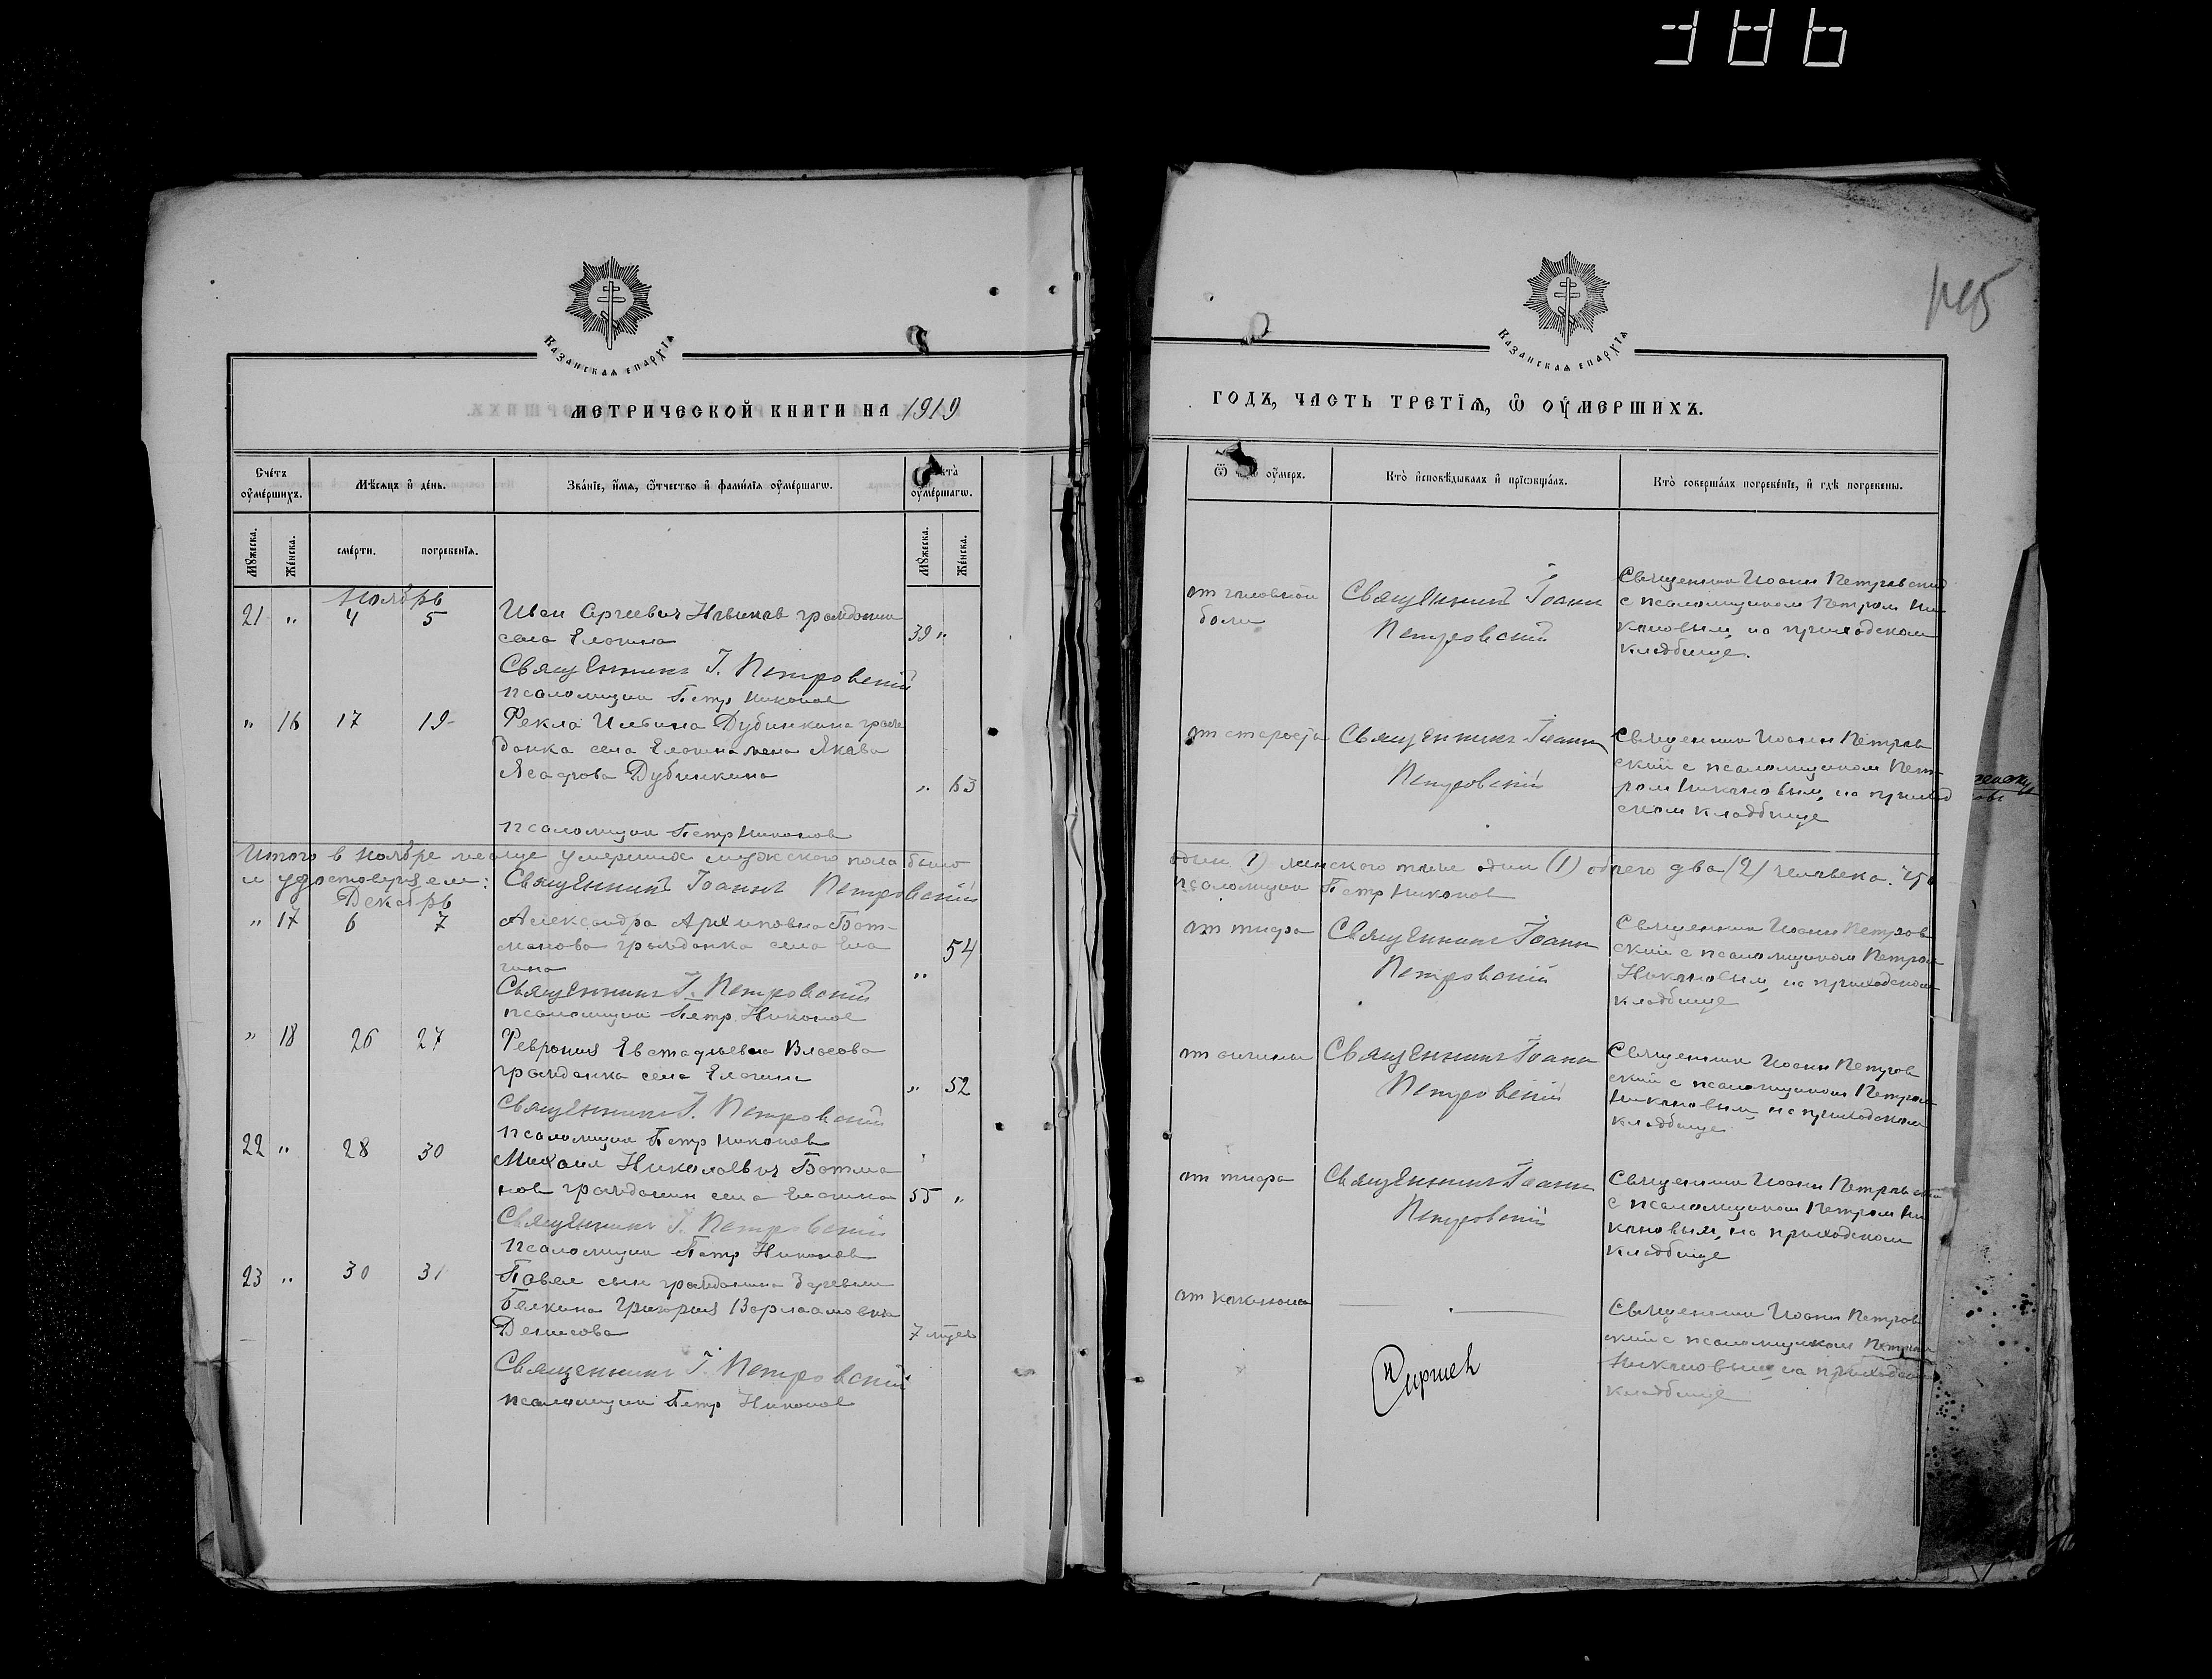 Казанская епархїя
МЕТРИЧЕСКОЙ КНИГИ НА 1919
Счетъ оумершихъ.
Мѣсяцъ и день.
Званїе, имя, отчество и фамилїя оумершаго.
оумершаго.
Мужеска.
Женска.
смерти.
погребенїя.
Мужеска.
Женска.
Ноябрь
21 " 4 5 Иван Сергеевич Новиков гражданин
села Елагина 39 "
Священникъ І. Петровскій
псаломщик Петр Никонов
" 16 17 19 Фекла Ильина Дубинкина граж
данка села жена Якова
Дубинкина " 63
псаломщик Петр Никонов
Итого в ноябре месяце умерших мужского пола было
и удостоверяем: Священникъ Іоаннъ Петровскій
Декабрь
" 17 6 7 Александра Архиповна Бат-
манова гражданка села Ела
гина " 54
Священникъ І. Петровскій
псаломщик Петр Никонов
" 18 26 27 Феврония Евстафьевна Власова
гражданка села Елагина " 52
Священникъ І. Петровскій
псаломщик Петр Никонов
22 " 28 30 Михаил Николаевич Ботма
нов гражданин села Елагина 55 "
Священникъ І. Петровскій
псаломщик Петр Никонов
23 " 30 31 Павел сын гражданина деревни
Белкина Григория Варлаамовича
Денисова 7 мсцев
Священникъ І. Петровскій
псаломщик Петр Никонов
Казанская епархїя
ГОДЪ, ЧАСТЬ ТРЕТЇЯ, Ѿ ОУМЕРШИХЪ.
оумеръ.
Кто исповѣдывалъ и прїобщалъ.
Кто совершалъ погребенїе, и гдѣ погребены.
от головной
боли
Священникъ Іоанн
Петровскій
Священник Иоанн Петровский
с псаломщиком Петром Ни
коновым, на приходском
кладбище.
от старости
Священникъ Іоанн
Петровскій
Священник Иоанн Петров
ский с псаломщиком Пет
ром Никоновым, на приход
ском кладбище
один (1) женского тоже один (1) обоего два (2) человека. Что
псаломщик Петр Никонов
от тифа
Священникъ Іоанн
Петровскій
Священник Иоанн Петров
ский с псаломщиком Петром
Никоновым, на приходском
кладбище
от
Священникъ Іоанн
Петровскій
Священник Иоанн Петров
ский с псаломщиком Петром
Никоновым, на приходском
кладбище
от тифа
Священникъ Іоанн
Петровскій
Священник Иоанн Петровский
с псаломщиком Петром Ни
коновым, на приходском
кладбище
от
Священник Иоанн Петров
ский с псаломщиком Петром
Никоновым, на приходском
кладбище